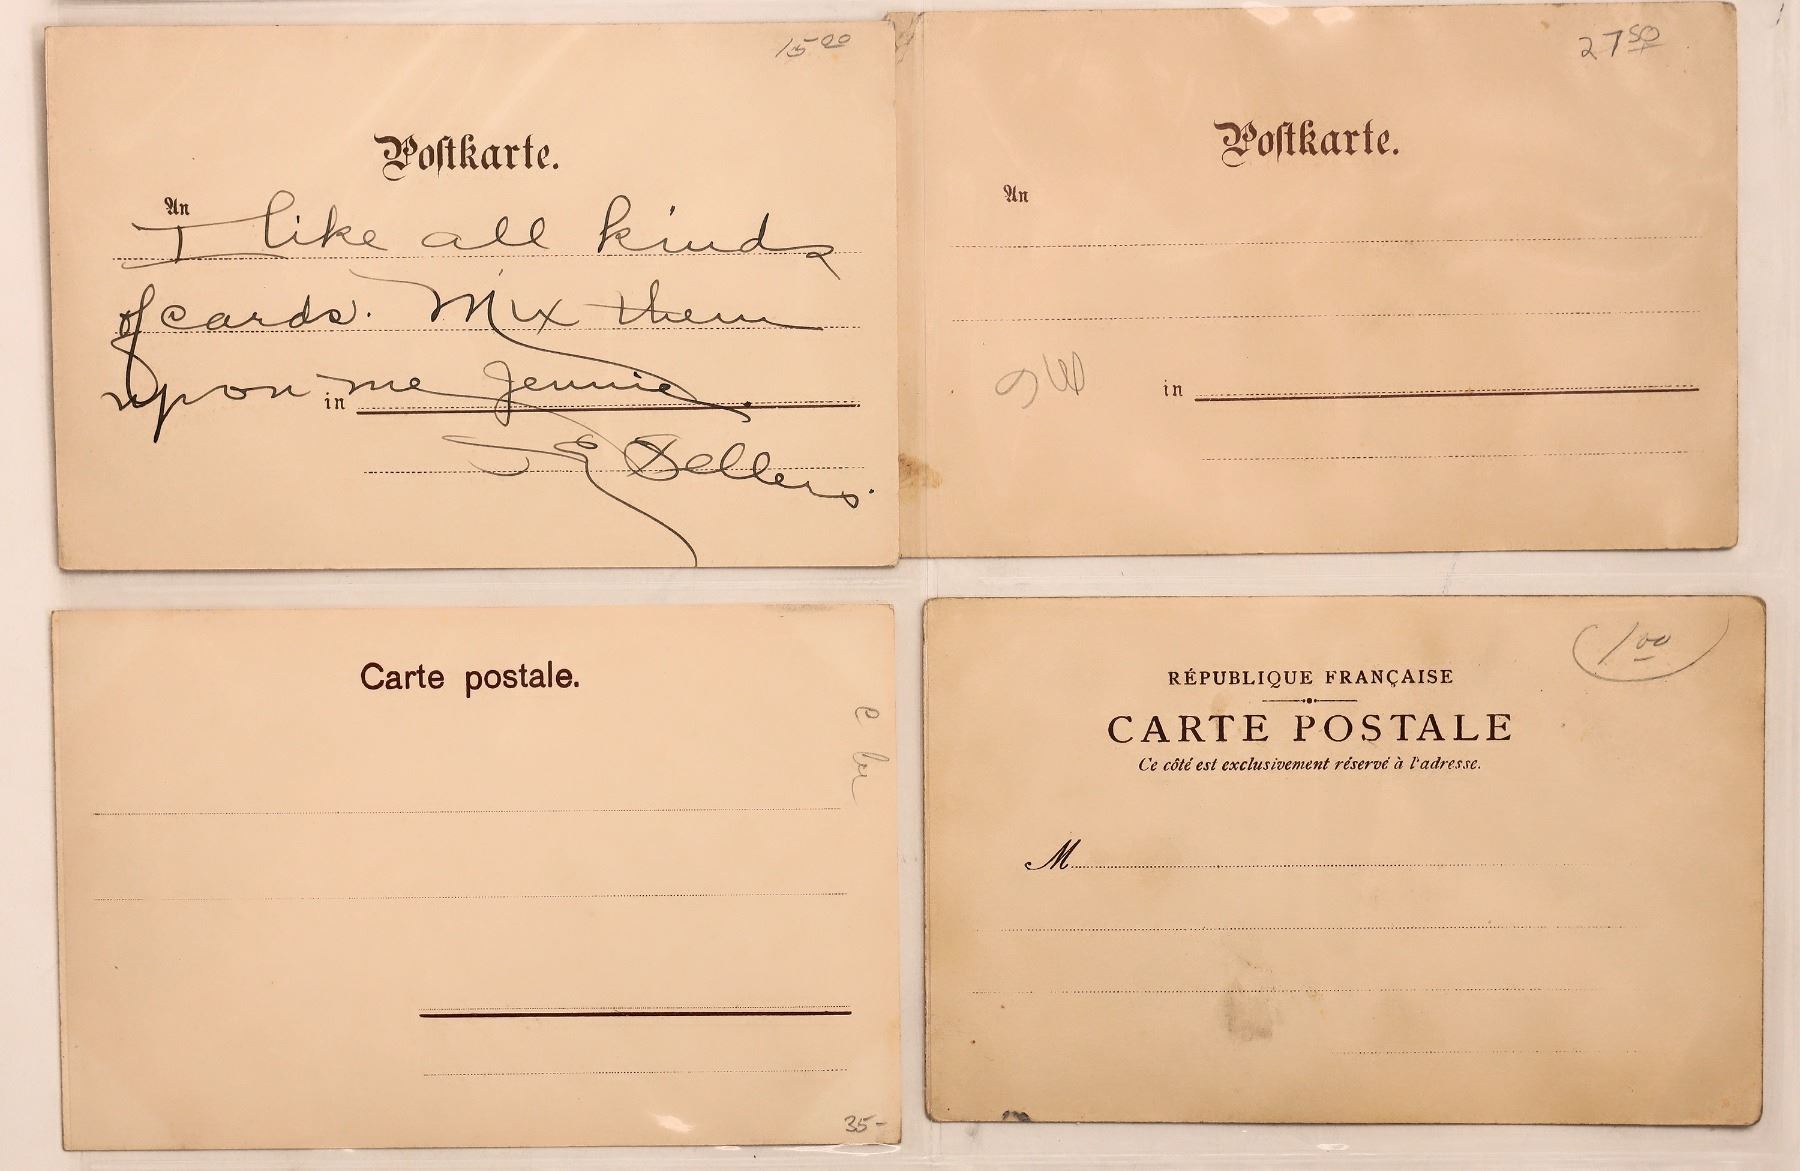 15 00
Postkarte.
An
I like all kinds
of cards. Mix them
upon me Jennie
in
J E Sellers.
27 50
Postkarte.
An
in
Carte postale.
35-
1 00
RÉPUBLIQUE FRANÇAISE
CARTE POSTALE
Ce côté est exclusivement réservé à l'adresse.
M